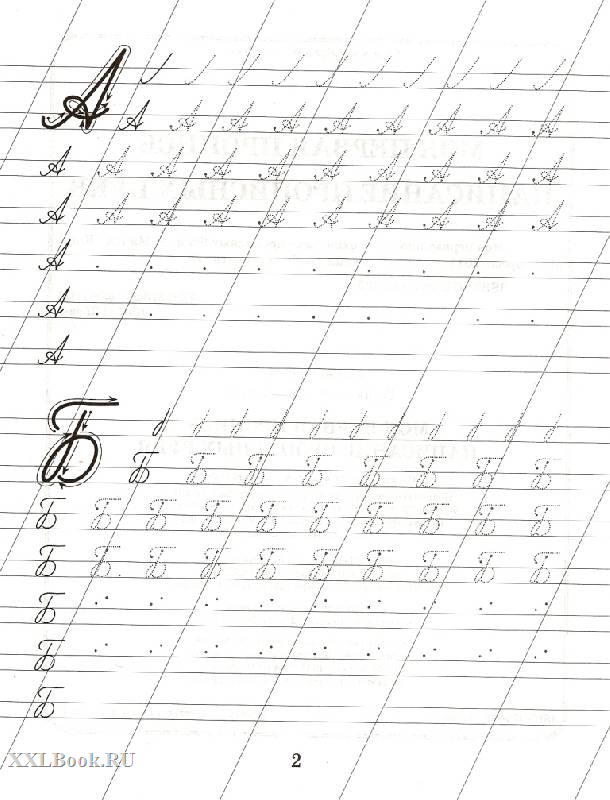 А
А А А А А А А А А
А А А А А А А А А А
А А А А А А А А А А
А
А
А
Б
Б Б Б Б Б Б Б Б
Б Б Б Б Б Б Б Б Б Б
Б Б Б Б Б Б Б Б Б Б
Б
Б
Б
XXLBook.RU 2